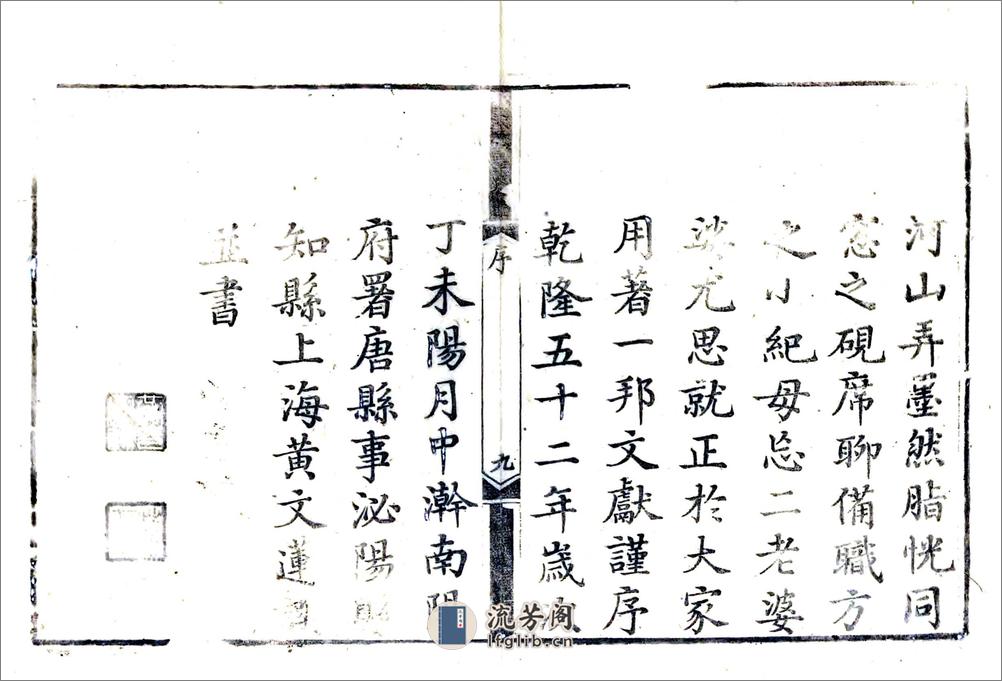 河山弄墨然脂恍同
窓之硯席聊備職方
之小紀毋忘二老婆
娑尤思就正於大家
用著一邦文獻謹序
乾隆五十二年歲次
序
九
丁未陽月中澣南陽
府署唐縣事泌陽縣
知縣上海黃文蓮
並書
流芳阁
lfglib.cn